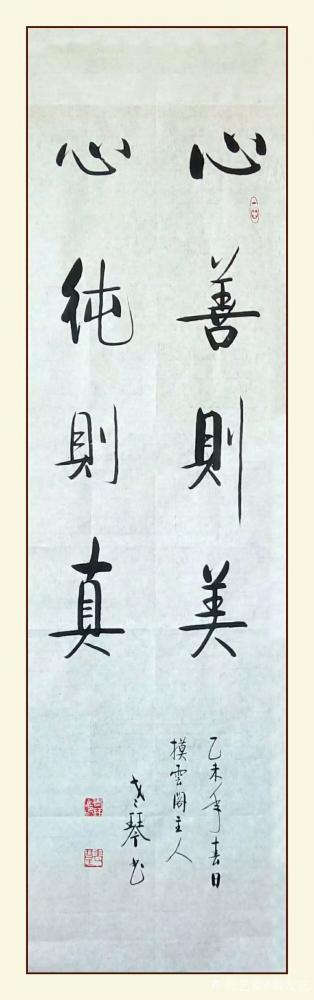 心善則美
心純則真
乙未年春日
摸雲閣主人
琴书